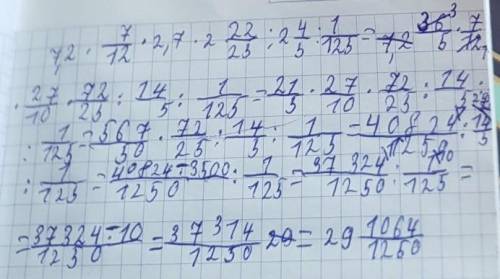 7,2 · 7/12 · 2,7 · 2 22/25 : 2 4/5 : 1/125 = 7,2 36/5 3 · 7/12
· 27/10 · 72/25 : 14/5 : 1/125 = 21/5 · 27/10 · 72/25 : 14
: 1/125 = 567/50 · 72/25 : 14/5 : 1/125 = 40824/1250 : 14/5
: 1/125 = 40824-3500/1250 : 1/125 = 37 324/1250 : 1/125 =
= 37324-10/1250 = 37314/1250 = 29 1064/1250